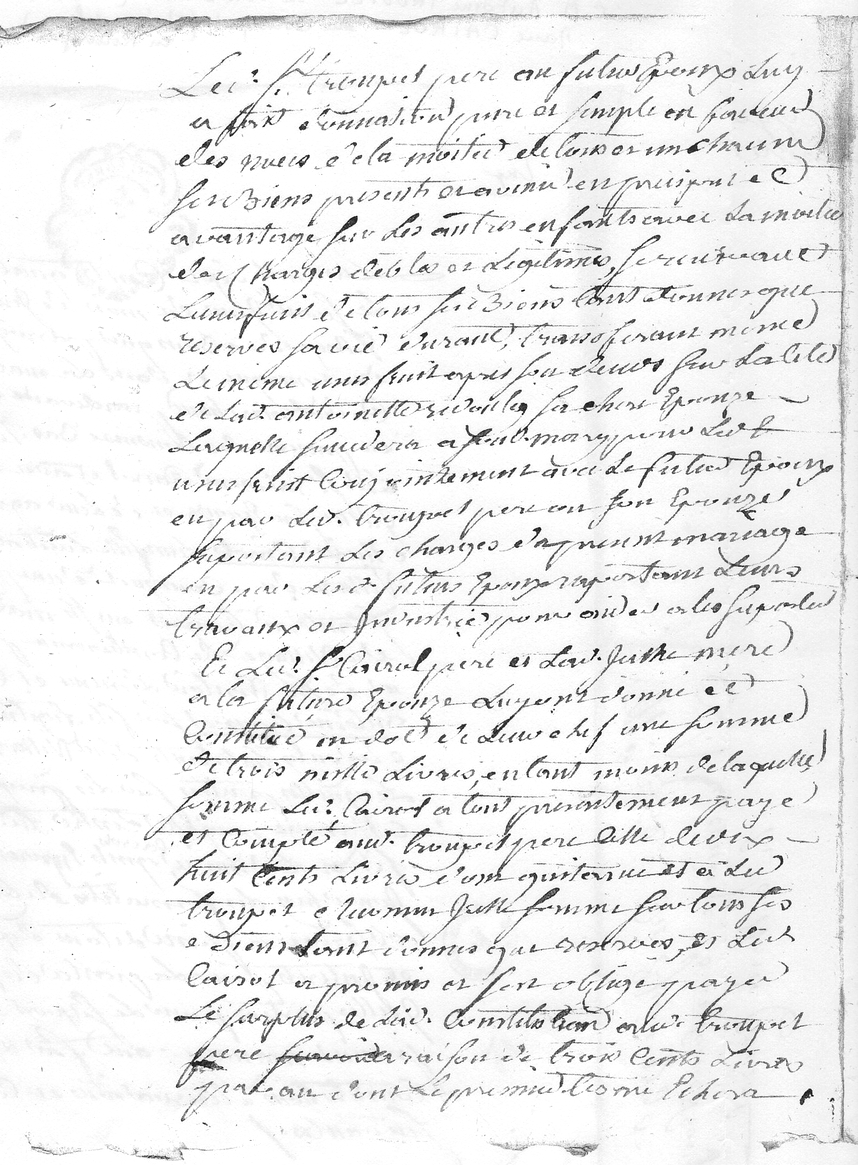 Led. Sr. troupel pere au futur Epoux Luy
a fait donnation pure et simple en faveur
des nöces de la moitié de tous et un chacun
ses Biens presents et avenir en preciput et
avantage sur Les autres enfants avec La moitié
des Charges debtes et Legitimes, se reservant
Lusufruit de tous ses Biens tant donnes que
reserves sa vie durant, transferant meme
Le meme usufruit apres son deces sur La tete
de Lad. antoinette sa chere Epouze
Laquelle succedera a feu son mary pour Led.
usufruit Conjointement avec Le futur Epoux
en par Led. troupel pere ou son Epouze
suportant Les charges du present mariage
en par Lesd. futurs Epoux raportant Leurs
travaux et Industrie pour aider a les suporter
Et Led. Sr. Cairol pere et Lad. mere
a la future Epouze Luy ont donné et
Constitué en dot de Leur chef une somme
de trois mille Livres, en tant moins de laquelle
somme Led. Cairol a tout presentement payé
et Compté aud. troupel pere Celle de dix
huit Cents Livres dont quittance et a Led.
troupel somme sur tous ses
Biens tant donnes que reserves, et Led.
Cairol a promis et s'est obligé payer
Le surplus de Lad. Constitution aud. troupel
pere a raison de trois Cents Livres
par an dont Le premier terme Echera